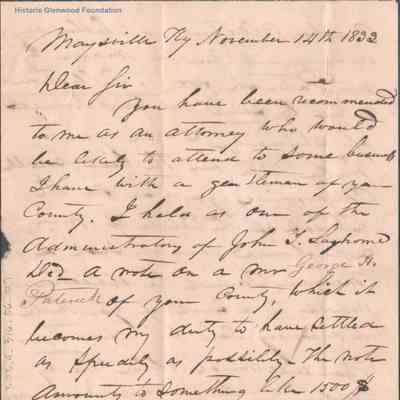 Historic Glenwood Foundation
Maysville Ky November 14th 1832
Dear Sir
You have been recommended
to me as an attorney who would
be likely to attend to some business
I have with a gentleman of your
County. I hold as one of the
Administrators of John T.
Dec'd a note on a Mr George H.
Patrick of your County, which it
becomes my duty to have settled
as speedily as possibly. The note
amounts to something like 1500 $